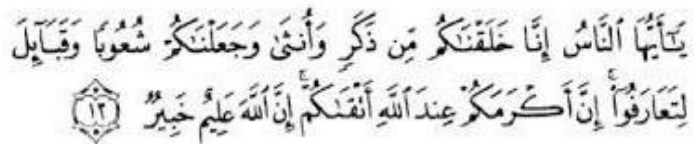 يَٰٓأَيُّهَا ٱلنَّاسُ إِنَّا خَلَقْنَٰكُم مِّن ذَكَرٍ وَأُنثَىٰ وَجَعَلْنَٰكُمْ شُعُوبًا وَقَبَآئِلَ
لِتَعَارَفُوٓا۟ ۚ إِنَّ أَكْرَمَكُمْ عِندَ ٱللَّهِ أَتْقَىٰكُمْ ۚ إِنَّ ٱللَّهَ عَلِيمٌ خَبِيرٌ ١٣